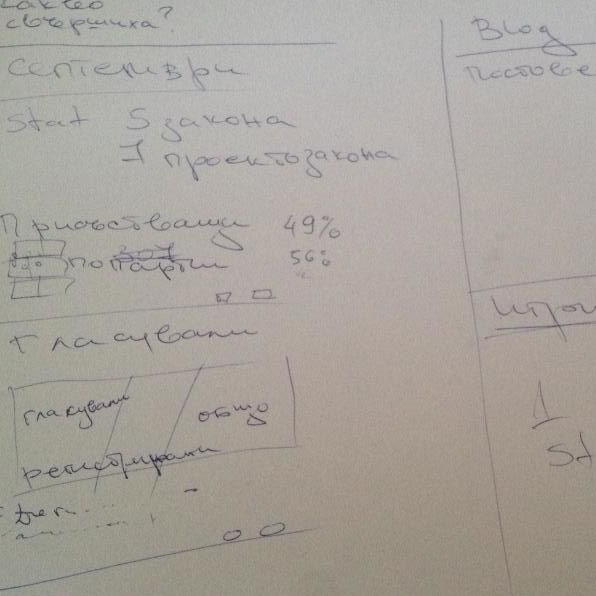 свършиха?
септември
Stat 5 закона
1 проектозакона
Присъстващи 49%
по партии 56%
Гласували
гласували
общо
регистрирани
Blog
постове
Игрои
1
St